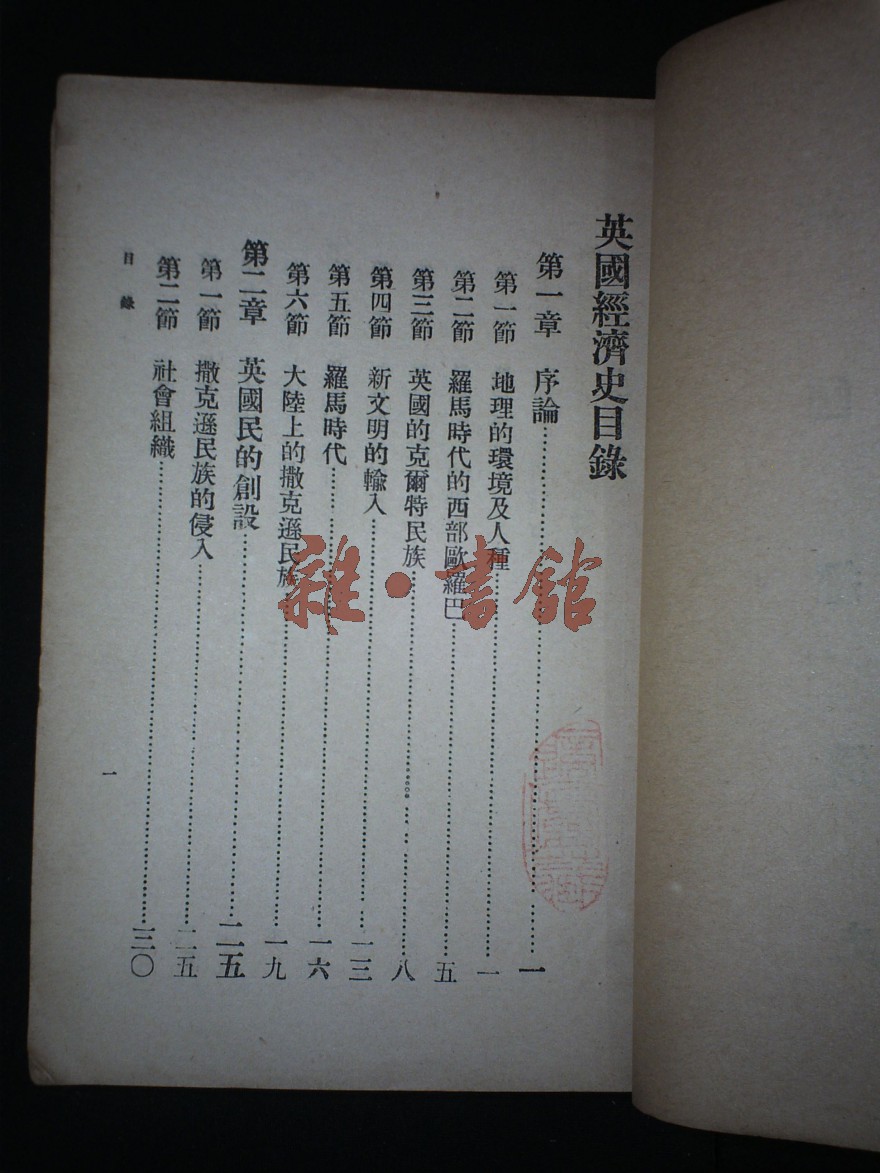 英國經濟史目錄
第一章　序論……一
第一節　地理的環境及人種……一
第二節　羅馬時代的西部歐羅巴……五
第三節　英國的克爾特民族……八
第四節　新文明的輸入……一三
第五節　羅馬時代……一六
第六節　大陸上的撒克遜民族……一九
第二章　英國民的創設……二五
第一節　撒克遜民族的侵入……二五
第二節　社會組織……三〇
目錄
一
雜·書館